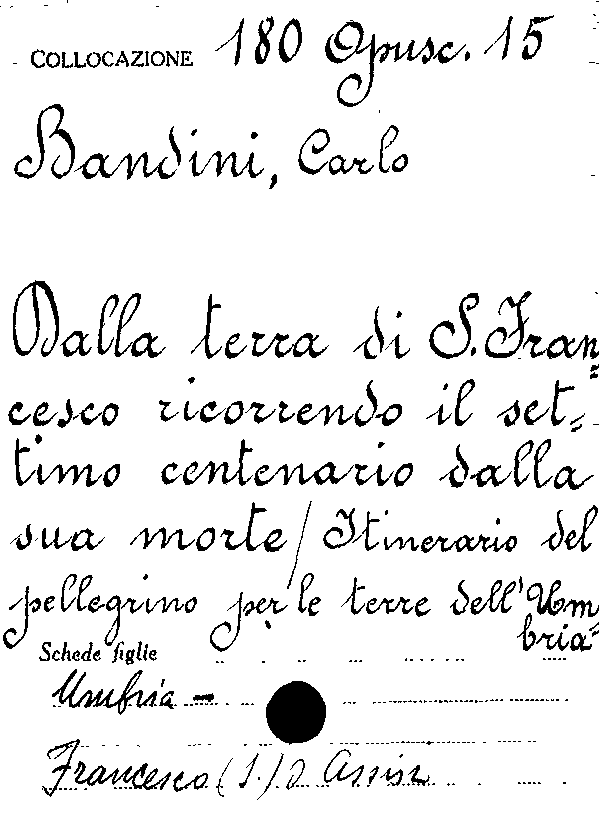 COLLOCAZIONE 180 Opusc. 15
Bandini, Carlo
Dalla terra di S. Fran=
cesco ricorrendo il set=
timo centenario dalla
sua morte / Itinerario del
pellegrino per le terre dell'Um
bria
Schede figlie
Umbria -
Francesco (S.) d'Assisi